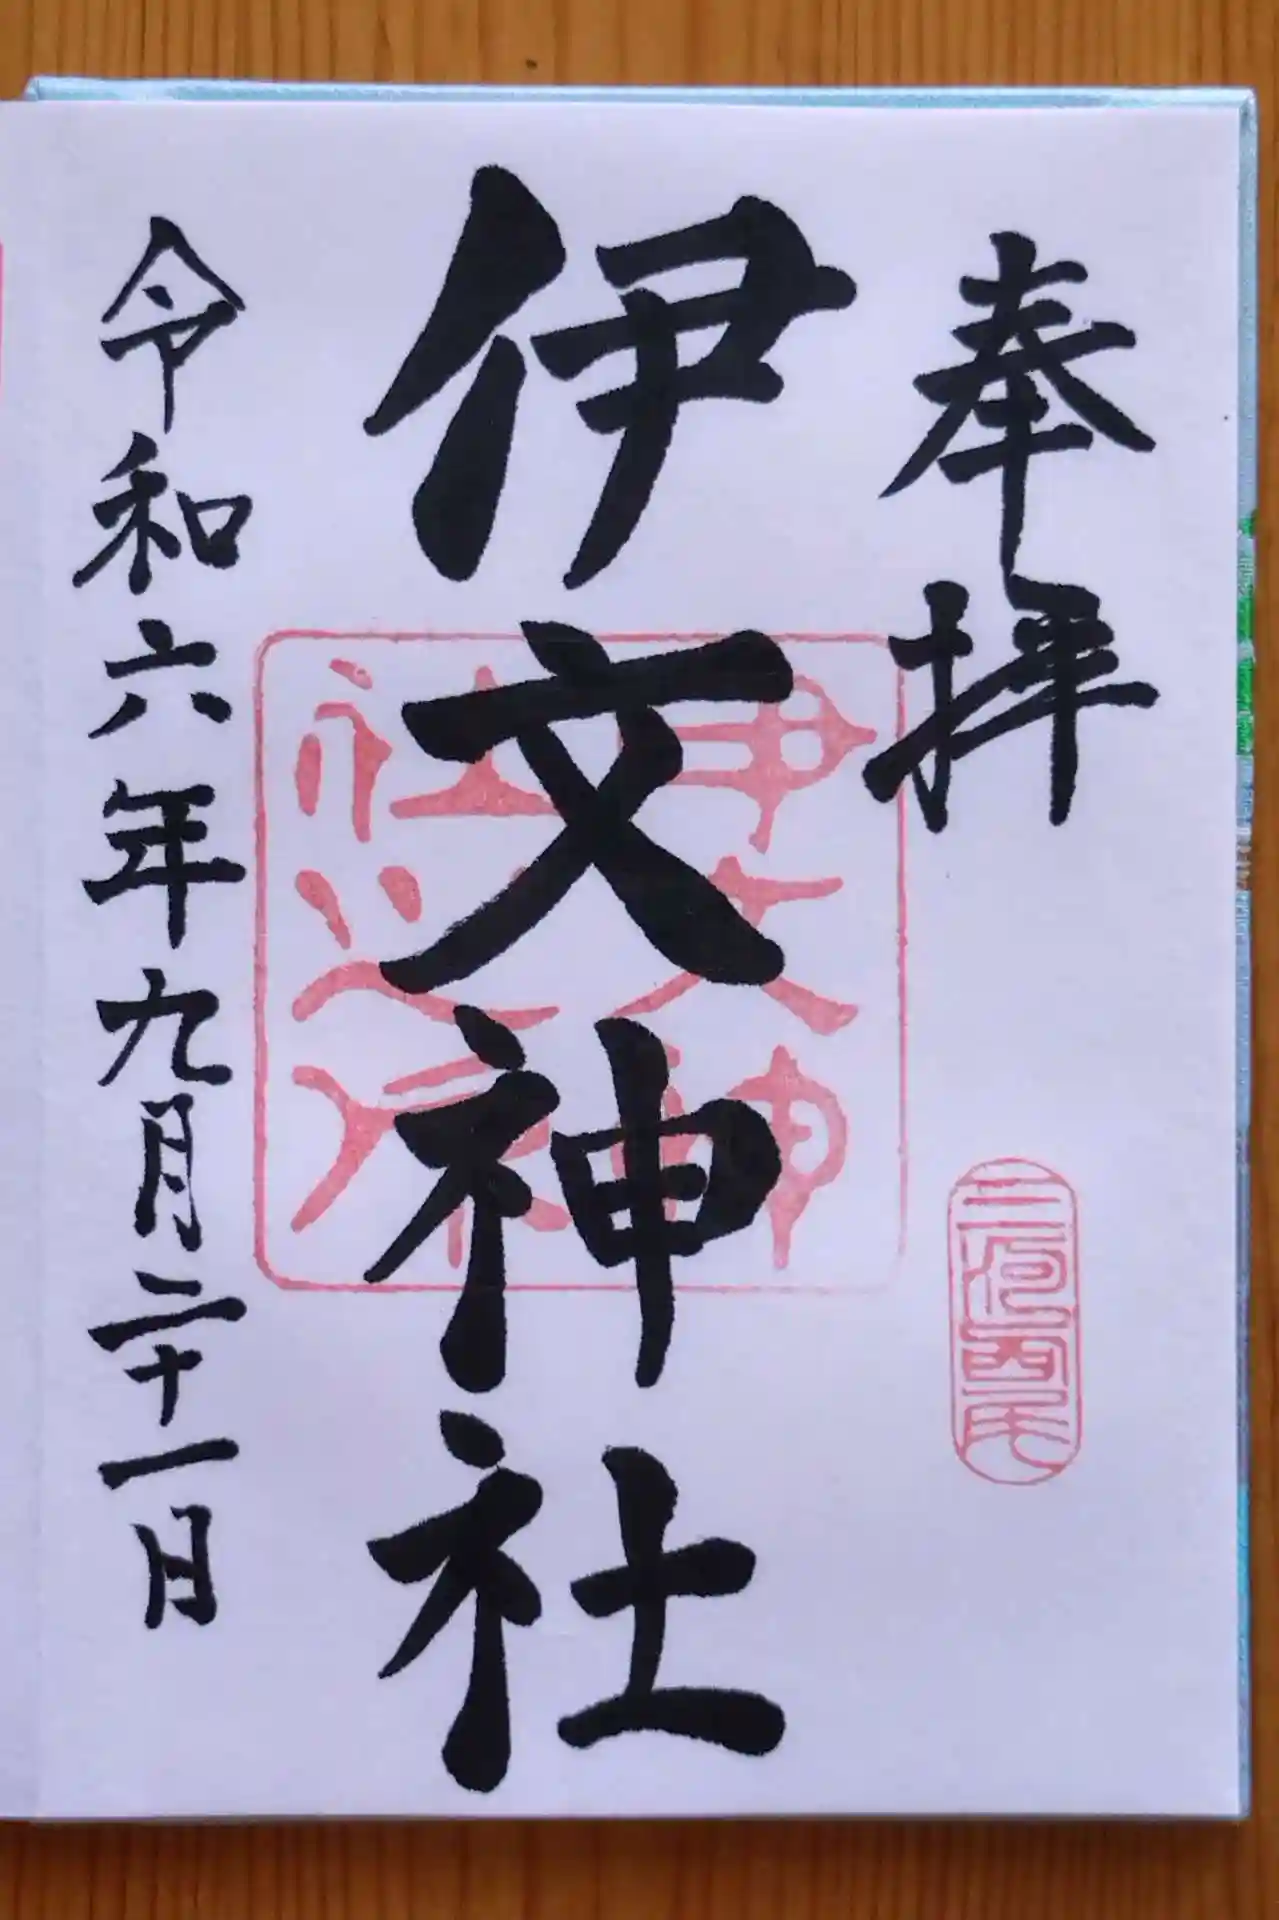 奉拝
三河西尾
伊文神社
伊文神
社之印
令和六年九月二十一日